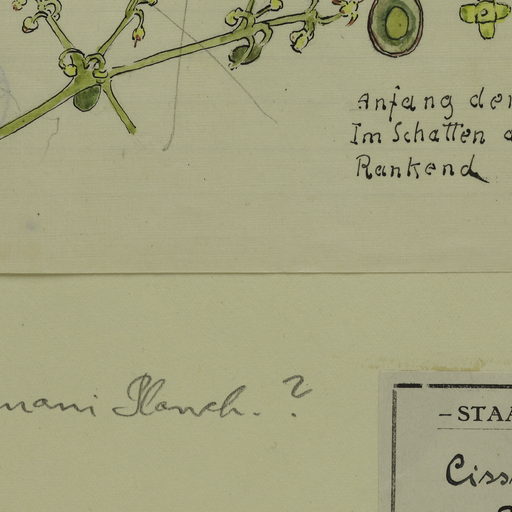 Anfang der
Im Schatten
Rankend
Planch. ?
– STAA
Ciss